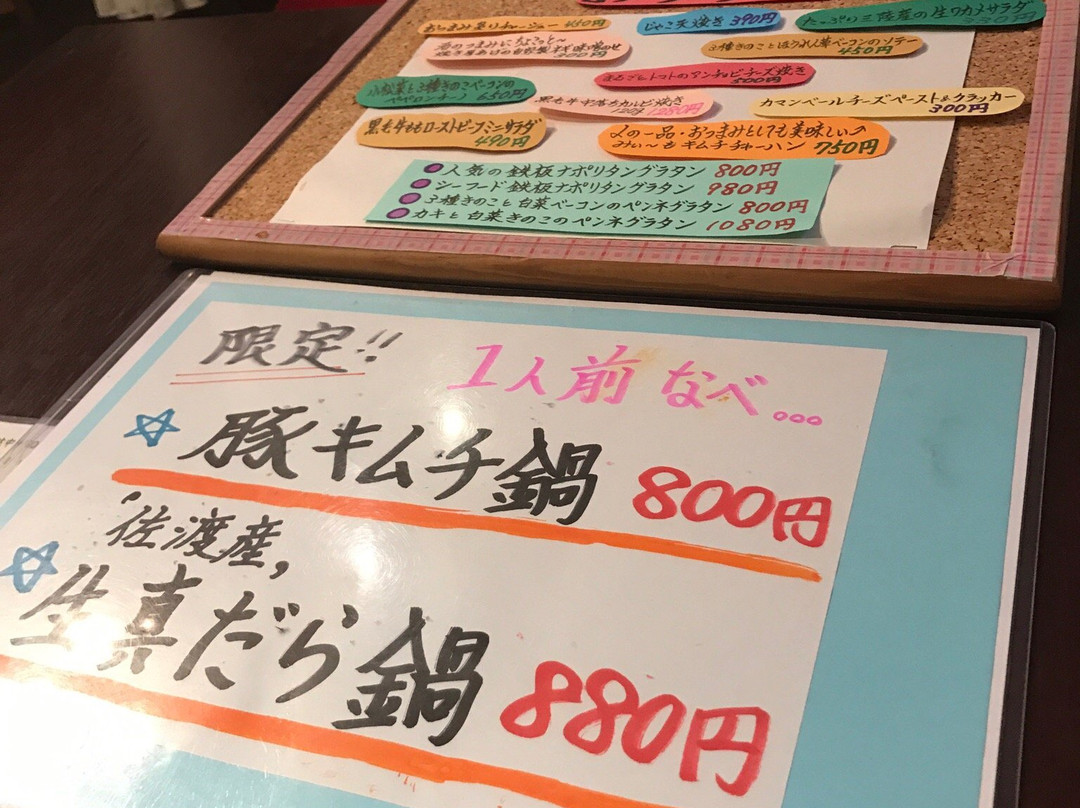 450円
じゃこ天焼き 390円
たっぷり三陸産の生ワカメサラダ
330円
300円
3種きのことほうれん草ベーコンのソテー
450円
まるごとトマトのアンチョビチーズ焼き
500円
小松菜と3種きのこベーコンの
ペペロンチーノ 650円
黒毛牛中落ちカルビ焼き
120g 1280円
カマンベールチーズペースト&クラッカー
300円
黒毛牛ももローストビーフミニサラダ
490円
〆の一品・おつまみとしても美味しい♪
キムチチャーハン 750円
●人気の鉄板ナポリタングラタン 800円
●シーフード鉄板ナポリタングラタン 980円
●3種きのこと白菜ベーコンのペンネグラタン 800円
●カキと白菜きのこのペンネグラタン 1080円
限定!!
1人前なべ...
☆豚キムチ鍋 800円
佐渡産,
☆生真だら鍋 880円